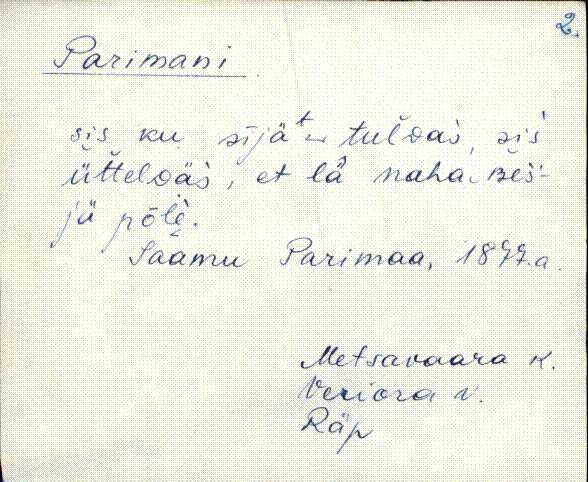 2.
Parimani
sis ku sijät tuĺdaś, siś
üťteldäś, et lä naha Bes-
jä pōlè.
Saamu Parimaa, 1877.a.
Metsavaara k.
Veriora v.
Räp